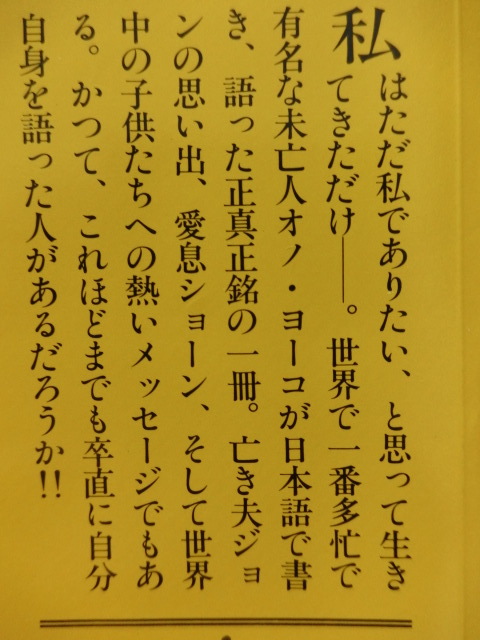 私はただ私でありたい、と思って生き
てきただけ――。世界で一番多忙で
有名な未亡人オノ・ヨーコが日本語で書
き、語った正真正銘の一冊。亡き夫ジョ
ンの思い出、愛息ショーン、そして世界
中の子供たちへの熱いメッセージでもあ
る。かつて、これほどまでも卒直に自分
自身を語った人があるだろうか!!